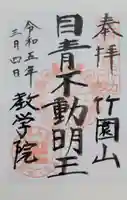 奉拝
竹園山
目青不動明王
教学院
令和五年
三月四日